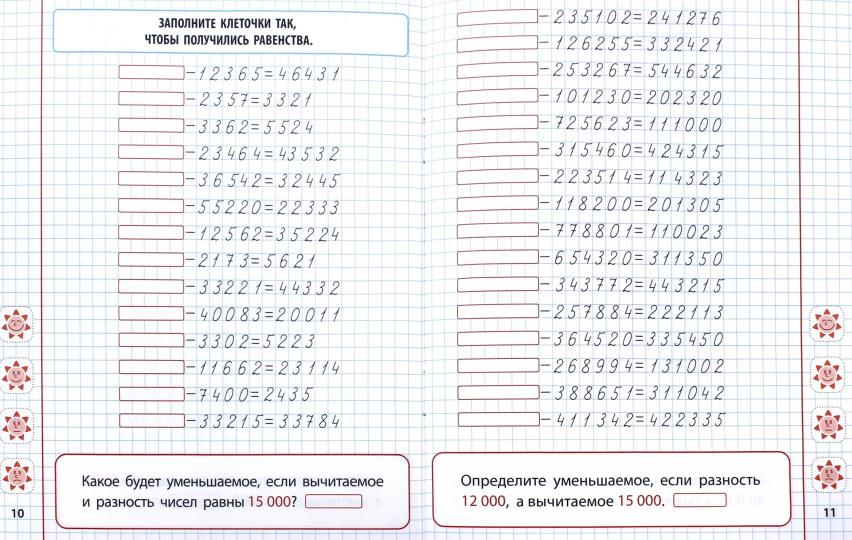 ЗАПОЛНИТЕ КЛЕТОЧКИ ТАК,
ЧТОБЫ ПОЛУЧИЛИСЬ РАВЕНСТВА.
-12365=46431
-2357=3321
-3362=5524
-23464=43532
-36542=32445
-55220=22333
-12562=35224
-2173=5621
-33221=44332
-40083=20011
-3302=5223
-11662=23114
-7400=2435
-33215=33784
Какое будет уменьшаемое, если вычитаемое
и разность чисел равны 15 000?
10
-235102=241276
-126255=332421
-253267=544632
-101230=202320
-725623=111000
-315460=424315
-223514=114323
-118200=201305
-778801=110023
-654320=311350
-343772=443215
-257884=222113
-364520=335450
-268994=131002
-388651=311042
-411342=422335
Определите уменьшаемое, если разность
12 000, а вычитаемое 15 000.
11